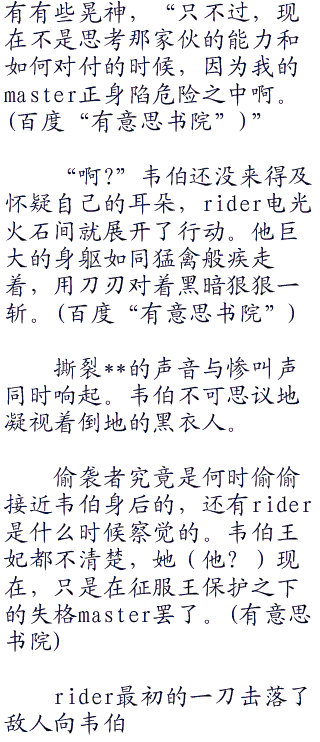 有有些晃神，“只不过，现
在不是思考那家伙的能力和
如何对付的时候，因为我的
master正身陷危险之中啊。
(百度“有意思书院”)”
“啊?”韦伯还没来得及
怀疑自己的耳朵，rider电光
火石间就展开了行动。他巨
大的身躯如同猛禽般疾走
着，用刀刃对着黑暗狠狠一
斩。(百度“有意思书院”)
撕裂**的声音与惨叫声
同时响起。韦伯不可思议地
凝视着倒地的黑衣人。
偷袭者究竟是何时偷偷
接近韦伯身后的，还有rider
是什么时候察觉的。韦伯王
妃都不清楚，她（他？）现
在，只是在征服王保护之下
的失格master罢了。(有意思
书院)
rider最初的一刀击落了
敌人向韦伯